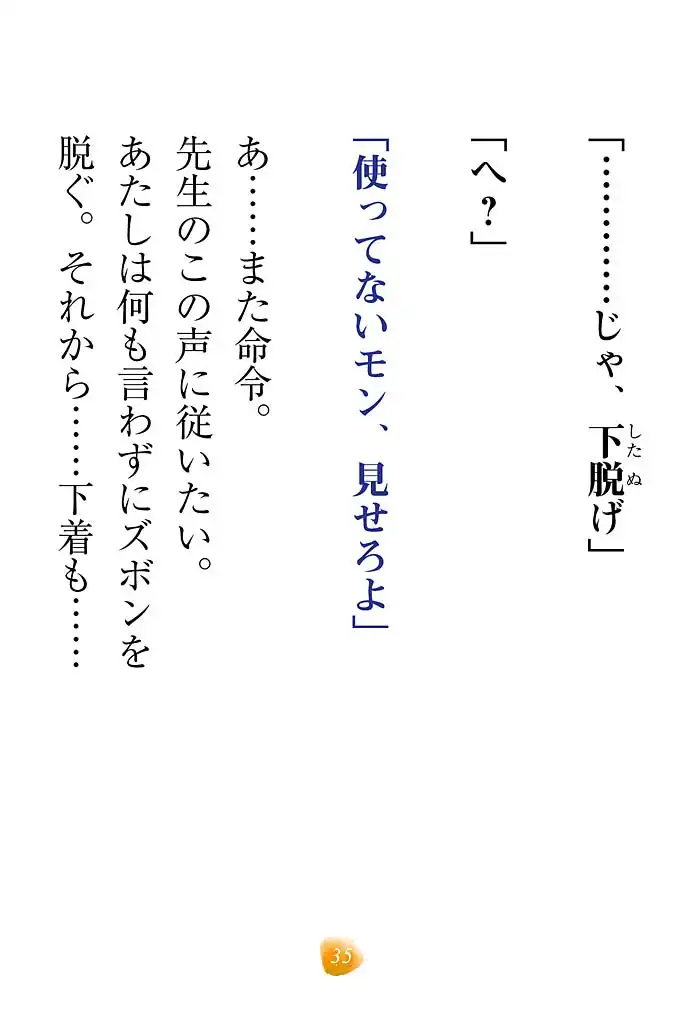 「…………じゃ、下脱げ」
したぬ
「へ？」
「使ってないモン、見せろよ」
あ……また命令。
先生のこの声に従いたい。
あたしは何も言わずにズボンを
脱ぐ。それから……下着も……
35